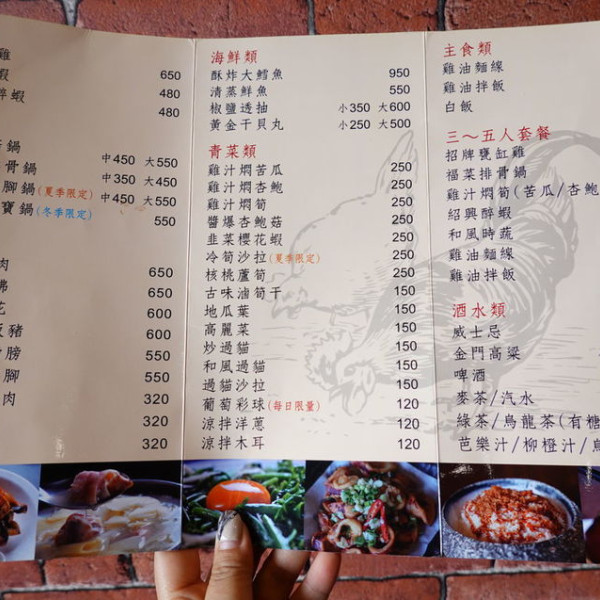 雞
蝦 650
醉蝦 480
480
鍋 中450 大550
骨鍋 中350 大450
腳鍋(夏季限定) 中450 大550
寶鍋(冬季限定) 550
肉 650
佛 650
花 600
豬 600
膀 550
腳 550
肉 320
320
海鮮類
酥炸大鱈魚 950
清蒸鮮魚 550
椒鹽透抽 小350 大600
黃金干貝丸 小250 大500
青菜類
雞汁燜苦瓜 250
雞汁燜杏鮑 250
雞汁燜筍 250
醬爆杏鮑菇 250
韭菜櫻花蝦 250
冷筍沙拉(夏季限定) 250
核桃蘆筍 250
古味滷筍干 150
地瓜葉 150
高麗菜 150
炒過貓 150
和風過貓 150
過貓沙拉 150
葡萄彩球(每日限量) 120
涼拌洋蔥 120
涼拌木耳 120
主食類
雞油麵線
雞油拌飯
白飯
三～五人套餐
招牌甕缸雞
福菜排骨鍋
雞汁燜筍(苦瓜/杏鮑
紹興醉蝦
和風時蔬
雞油麵線
雞油拌飯
酒水類
威士忌
金門高粱
啤酒
麥茶/汽水
綠茶/烏龍茶(有糖
芭樂汁/柳橙汁/烏